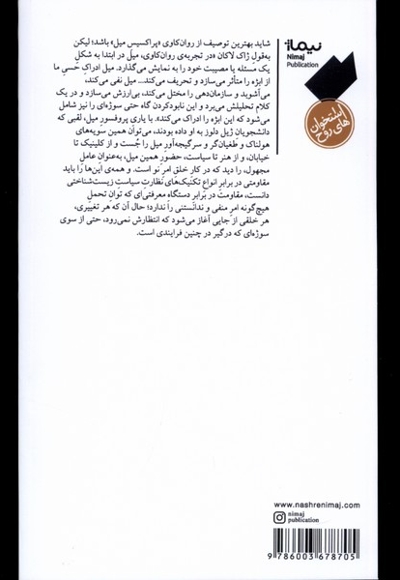 نیماژ
Nimaj
Publication
استخوان‌های روح
شاید بهترین توصیف از روان‌کاوی «پراکسیس میل» باشد؛ لیکن
به‌قول ژاک لاکان «در تجربه‌ی روان‌کاوی، میل در ابتدا به شکل
یک مسئله یا مصیبت خود را به نمایش می‌گذارد. میل ادراکِ حسیِ ما
از ابژه را متأثر می‌سازد و تحریف می‌کند... میل نفی می‌کند،
می‌آشوبد و سازمان‌دهی را مختل می‌کند، بی‌ارزش می‌سازد و در یک
کلام تحلیلش می‌برد و این نابودکردن گاه حتی سوژه‌ای را نیز شامل
می‌شود که این ابژه را ادراک می‌کند». با یاری پروفسور میل، لقبی که
دانشجویان ژیل دلوز به او داده بودند، می‌توان همین سویه‌های
هولناک و طغیان‌گر و سرگیجه‌آورِ میل را جُست و از کلینیک تا
خیابان، و از هنر تا سیاست، حضورِ همین میل، به‌عنوانِ عاملِ
مجهول، را دید که در کارِ خلقِ امرِ نو است. و همه‌ی این‌ها را باید
مقاومتی در برابرِ انواعِ تکنیک‌های نظارتِ سیاستِ زیست‌شناختی
دانست، مقاومت در برابرِ دستگاه معرفتی‌ای که توانِ تحملِ
هیچ‌گونه امرِ منفی و ندانستنی را ندارد؛ حال آن که هر تغییری،
هر خلقی از جایی آغاز می‌شود که انتظارش نمی‌رود، حتی از سوی
سوژه‌ای که درگیر در چنین فرایندی است.
www.nashrenimaj.com
nimaj
publication
9 786003 678705